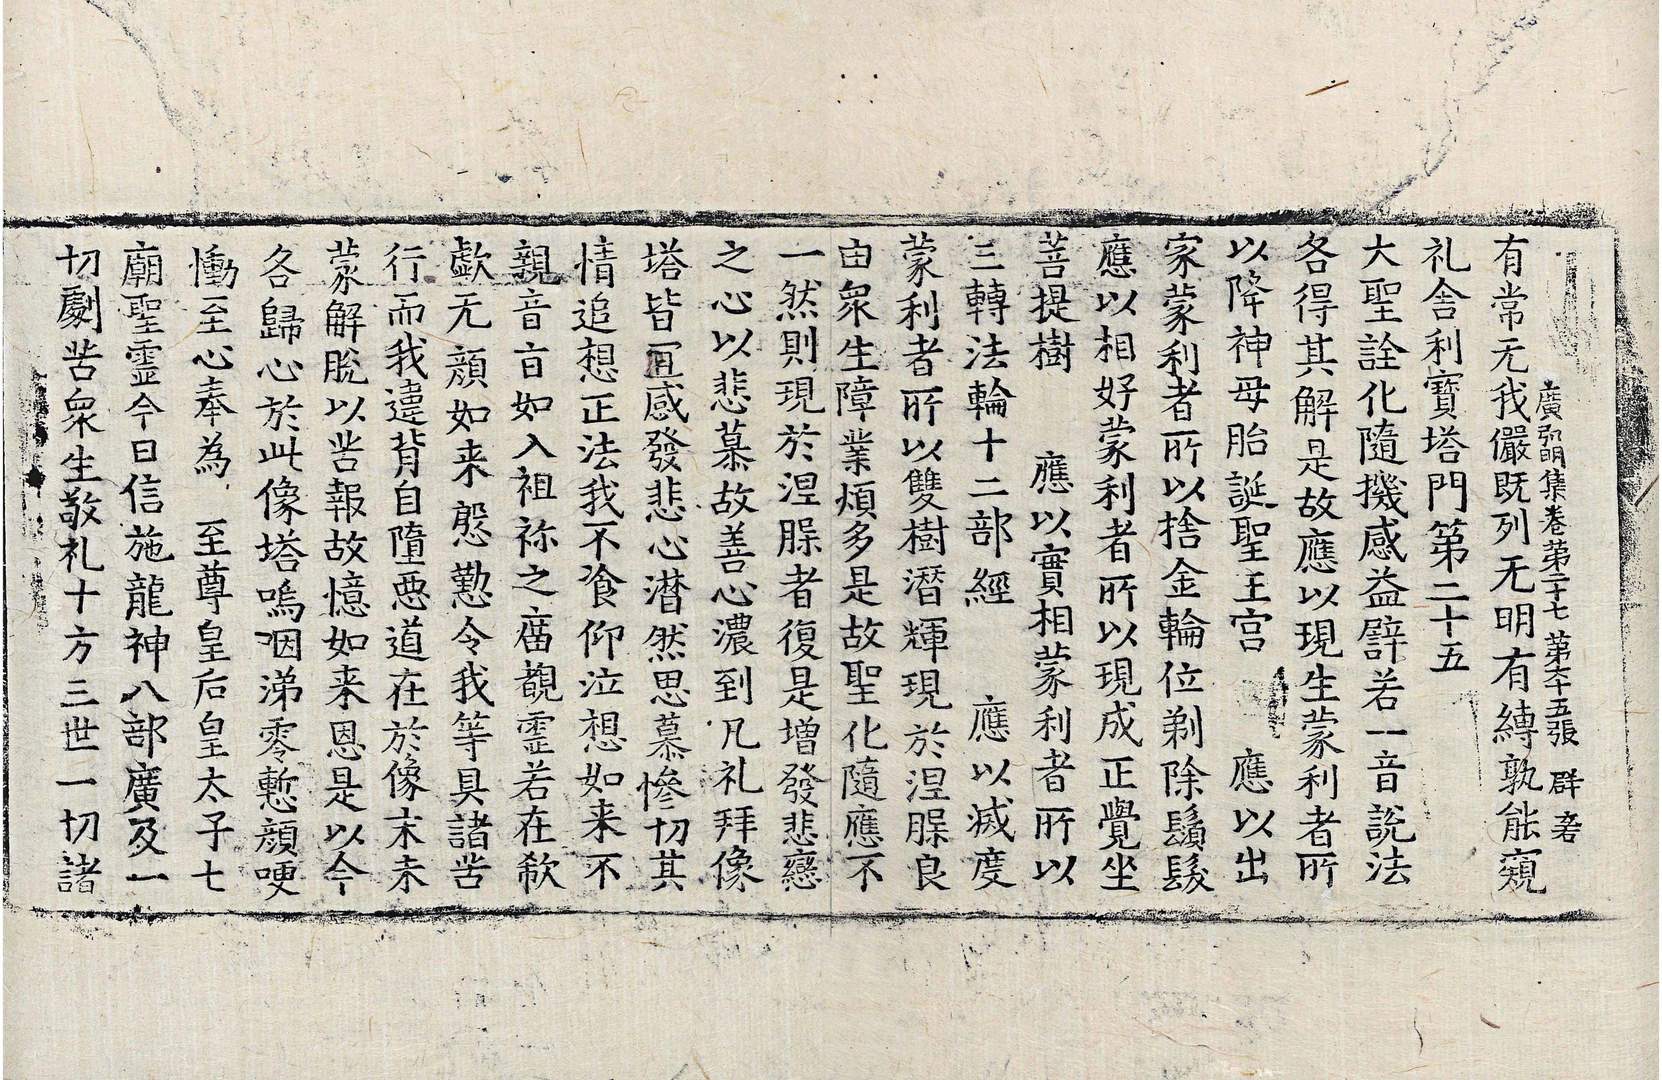 廣弘明集卷第二十七 第六十五張 群
有常无我儼既列无明有縛孰能窺
礼舍利寶塔門第二十五
大聖詮化隨機感益譬若一音說法
各得其解是故應以現生蒙利者所
以降神母胎誕聖王宫 應以出
家蒙利者所以捨金輪位剃除鬚髮
應以相好蒙利者所以現成正覺坐
菩提樹 應以實相蒙利者所以
三轉法輪十二部經 應以滅度
蒙利者所以雙樹潛輝現於涅槃良
由衆生障業煩多是故聖化隨應不
一然則現於涅槃者復是增發悲戀
之心以悲慕故善心濃到凡礼拜像
塔皆宜感發悲心潛然思慕慘切其
情追想正法我不飡仰泣想如来不
親音旨如入祖祢之庿覩霊若在欷
歔无顔如来慇懃令我等具諸苦
行而我違背自墮惡道在於像末未
蒙解脫以苦報故憶如来恩是以今
各歸心於此像塔嗚咽涕零慙顔哽
慟至心奉為 至尊皇后皇太子七
廟聖霊今日信施龍神八部廣及一
切劇苦衆生敬礼十方三世一切諸